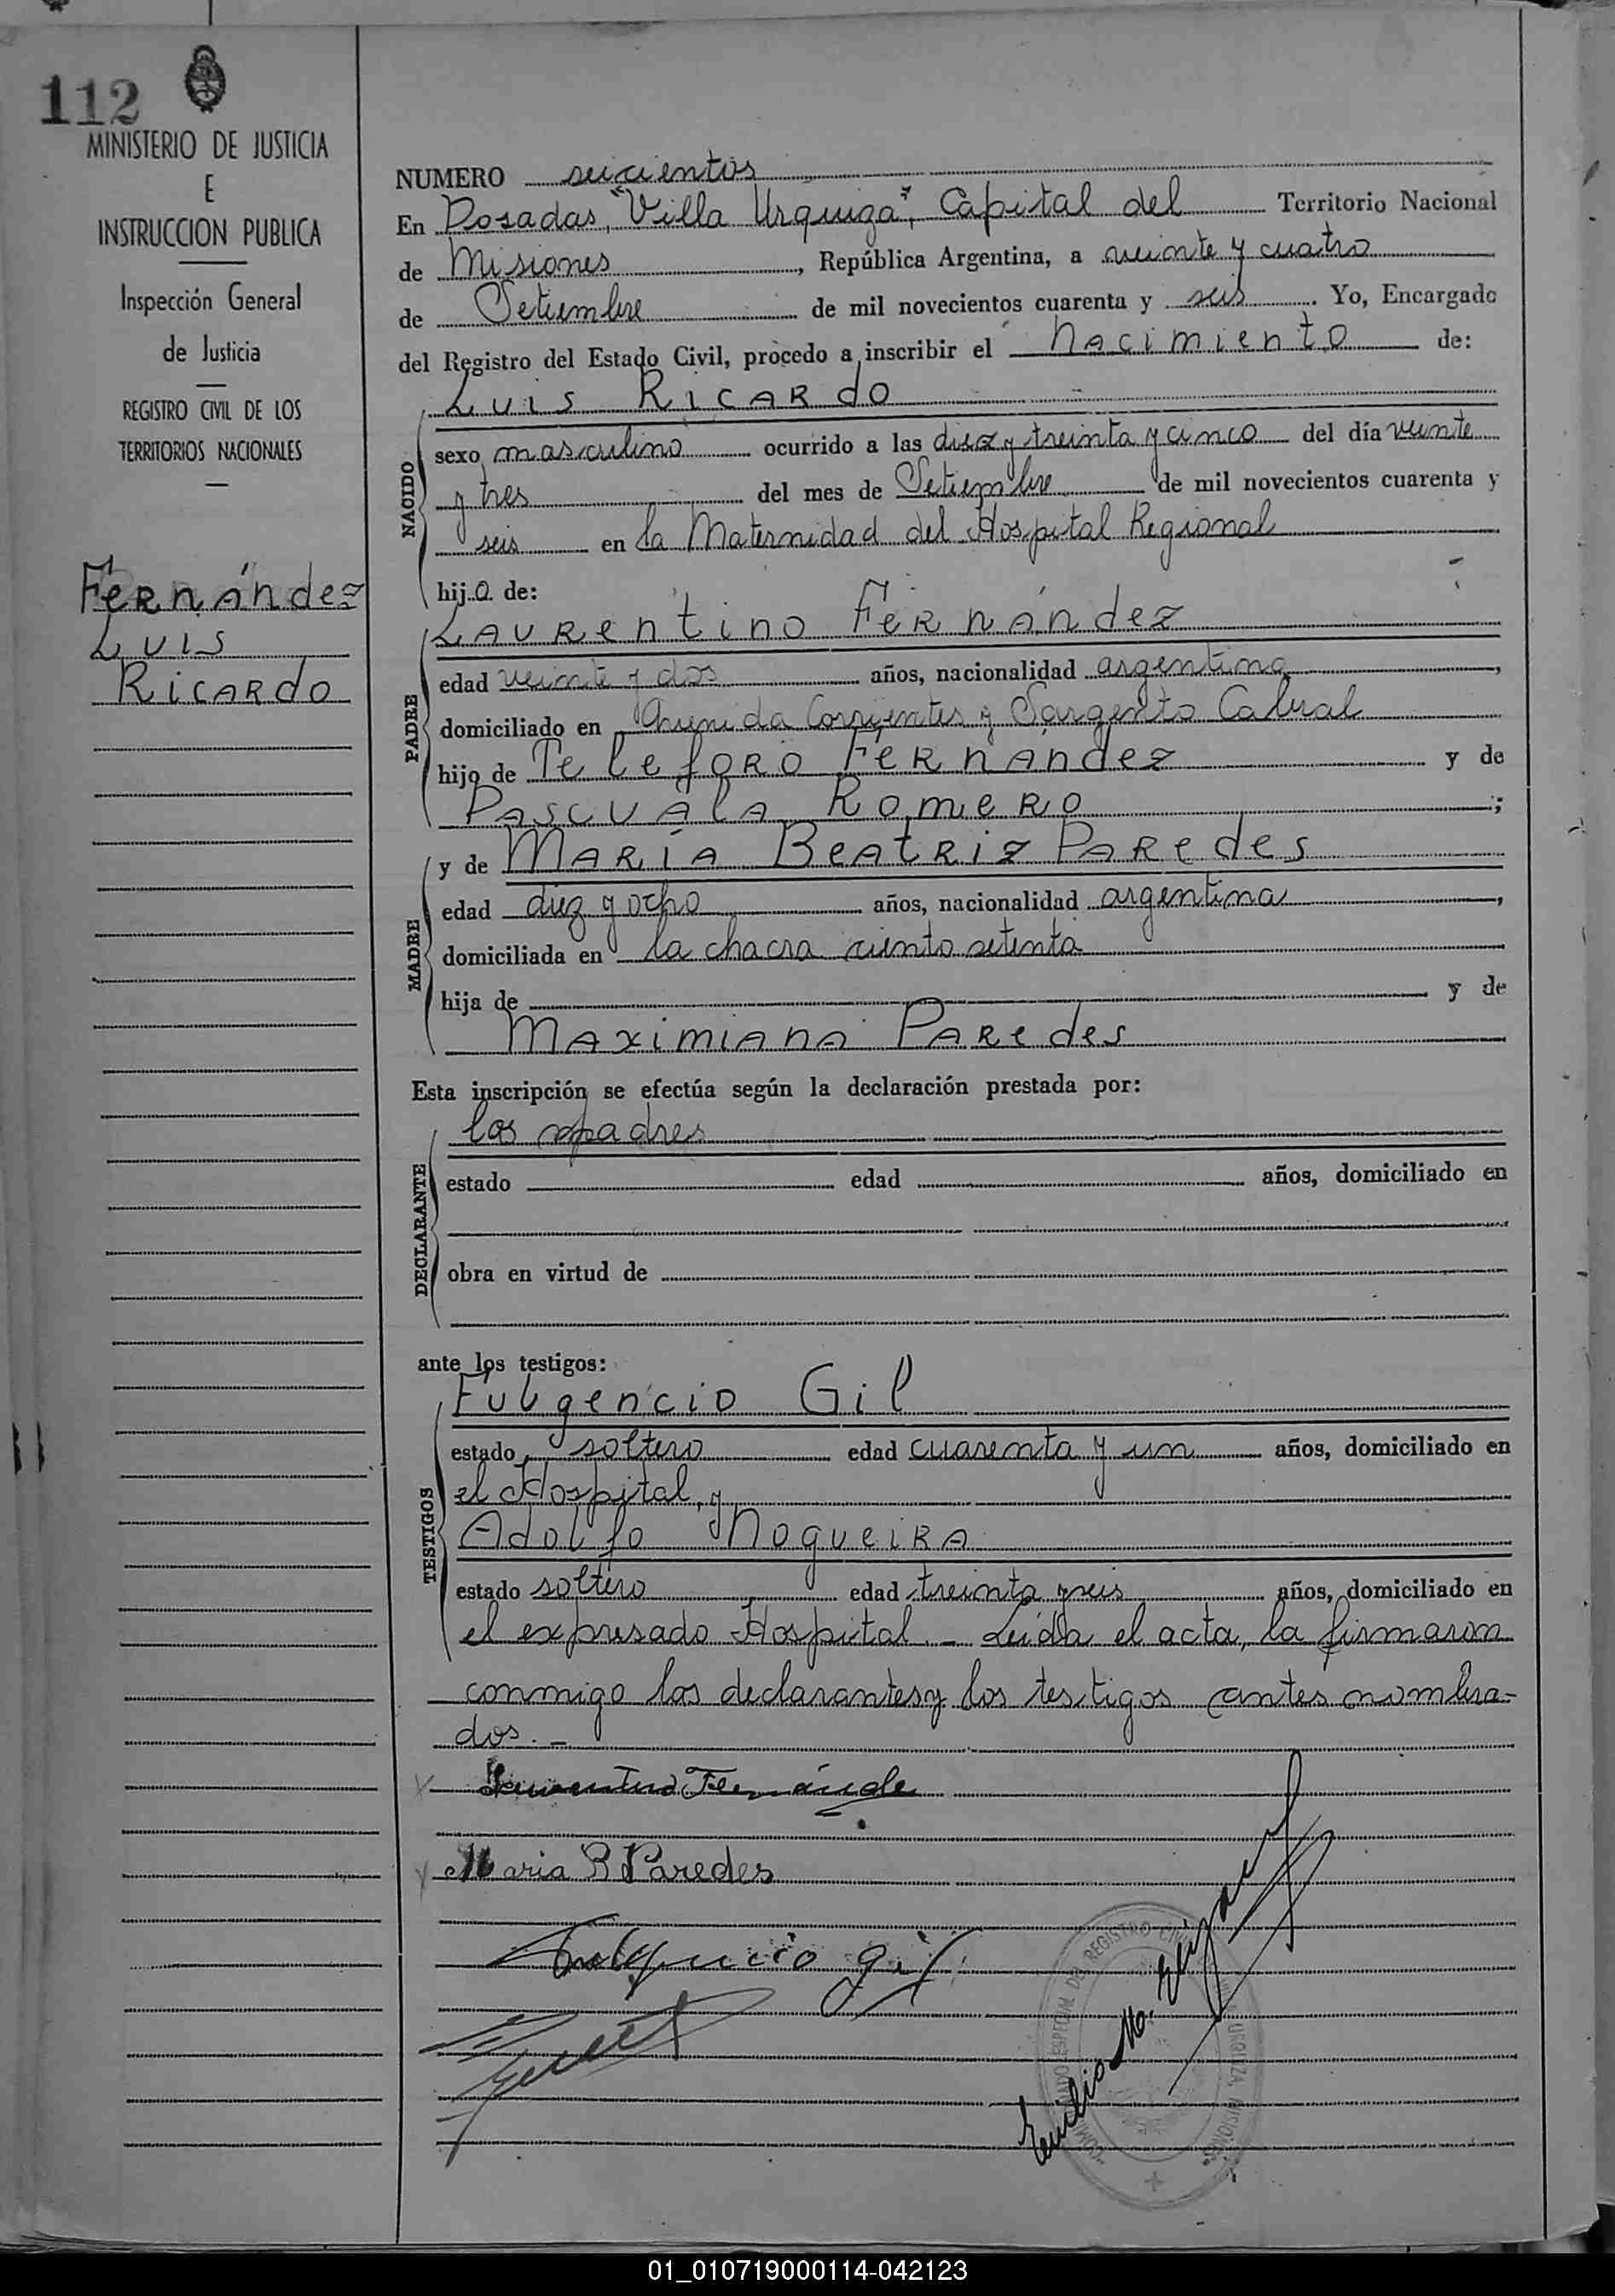 112
MINISTERIO DE JUSTICIA
E
INSTRUCCION PUBLICA
Inspección General
de Justicia
REGISTRO CIVIL DE LOS
TERRITORIOS NACIONALES
Fernández
Luis
Ricardo
NUMERO seiscientos
En Posadas, "Villa Urquiza", Capital del Territorio Nacional
de Misiones, República Argentina, a veinte y cuatro
de Setiembre de mil novecientos cuarenta y seis. Yo, Encargado
del Registro del Estado Civil, procedo a inscribir el nacimiento de:
Luis Ricardo
NACIDO
sexo masculino ocurrido a las diez y treinta y cinco del día veinte
y tres del mes de Setiembre de mil novecientos cuarenta y
seis en la Maternidad del Hospital Regional
hijo de:
PADRE
Laurentino Fernández
edad veinte y dos años, nacionalidad argentina,
domiciliado en Avenida Corrientes y Sargento Cabral
hijo de Teleforo Fernández y de
Pascuala Romero;
MADRE
y de María Beatriz Paredes
edad diez y ocho años, nacionalidad argentina,
domiciliada en la chacra ciento setenta
hija de y de
Maximiana Paredes
Esta inscripción se efectúa según la declaración prestada por:
DECLARANTE
los padres
estado edad años, domiciliado en
obra en virtud de
ante los testigos:
TESTIGOS
Fulgencio Gil
estado soltero edad cuarenta y un años, domiciliado en
el Hospital, y
Adolfo Nogueira
estado soltero edad treinta y seis años, domiciliado en
el expresado Hospital.- Leída el acta, la firmaron
conmigo los declarantes y los testigos antes nombra-
dos.-
Laurentino Fernánde
Maria B Paredes
Fulgencio Gil
Emilio M.
REGISTRO CIVIL
URQUIZA, MISIONES
01_010719000114-042123